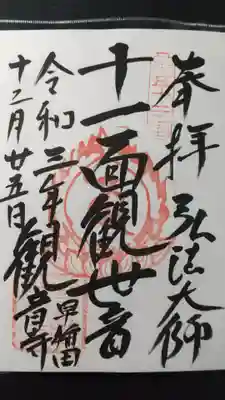 奉拝 弘法大師
十一面観世音
早稲田
観音寺
令和三年
十二月廿五日